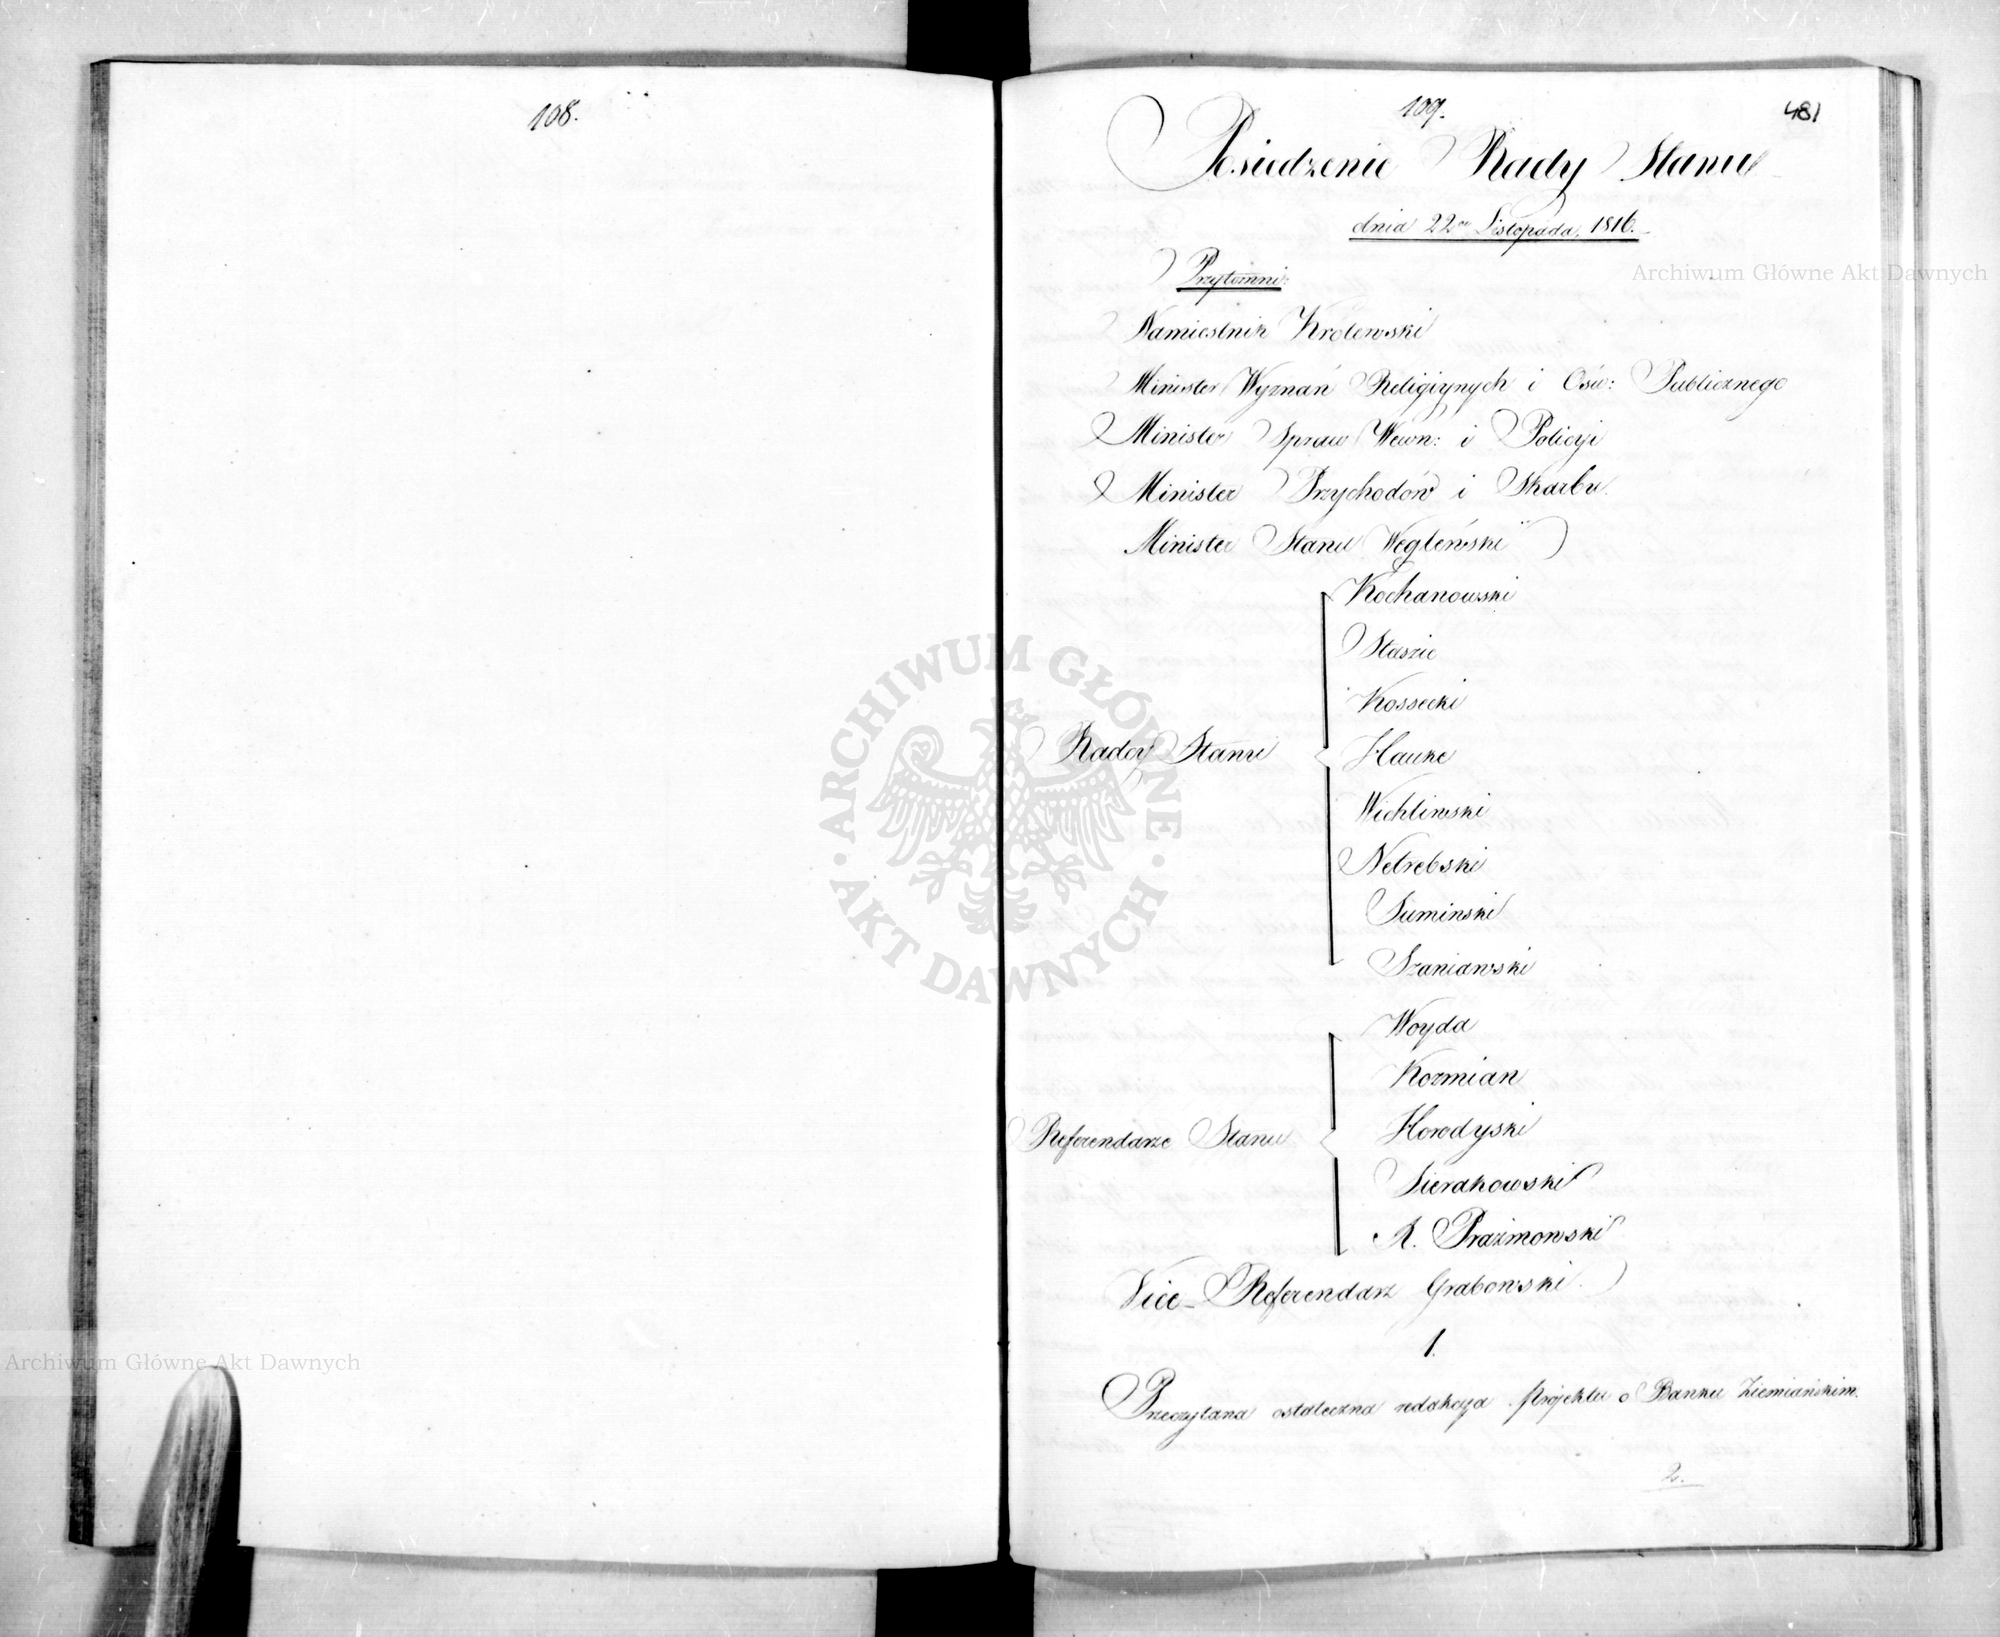 108.
109.
481
Posiedzenie Rady Stanu
dnia 22go Listopada, 1816.
Przytomni:
Namiestnik Królewski
Minister Wyznań Religijnych i Ośw: Publicznego
Minister Spraw Wewn: i Policyi
Minister Przychodów i Skarbu.
Minister Stanu Węgleński
Kochanowski
Staszic
Kossecki
Radcy Stanu
Hauke
Wichlinski
Netrebski
Suminski
Szaniawski
Woyda
Kozmian
Horodyski
Referendarze Stanu
Sierakowski
A. Prażmowski
Vice-Referendarz Grabowski.
1.
Przeczytana ostateczna redakcya Projektu o Banku Ziemiańskim.
2.
Archiwum Główne Akt Dawnych
Archiwum Główne Akt Dawnych
ARCHIWUM GŁÓWNE AKT DAWNYCH